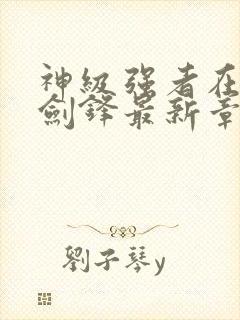 神級强者在
劍鋒最新章
劉子琴y